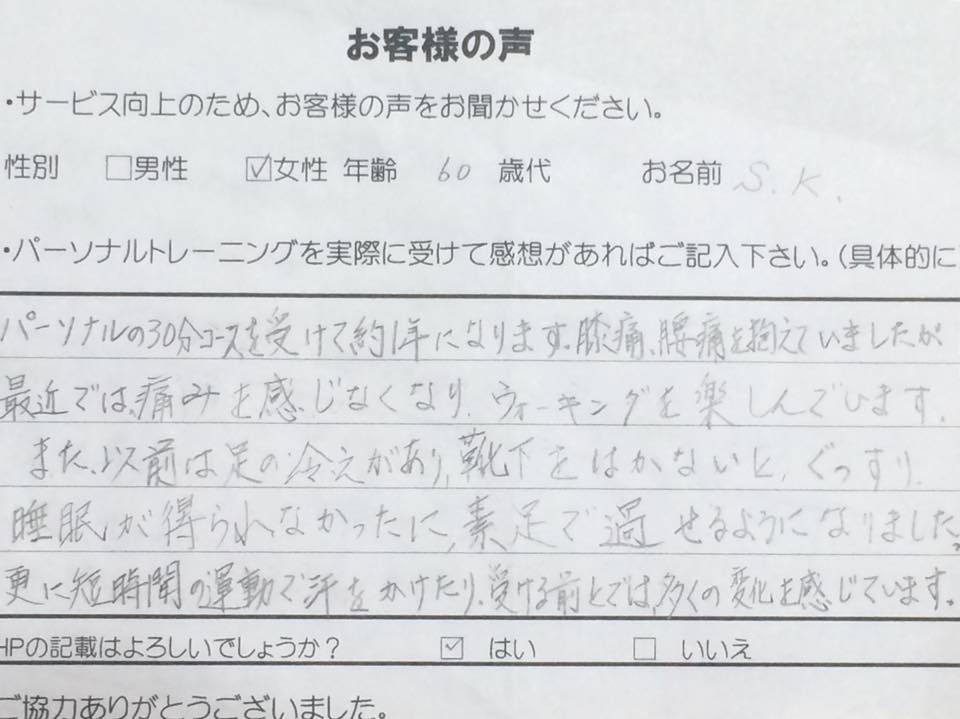 お客様の声
・サービス向上のため、お客様の声をお聞かせください。
性別 □男性 ☑女性 年齢 60 歳代 お名前 S.K.
・パーソナルトレーニングを実際に受けて感想があればご記入下さい。（具体的に
パーソナルの30分コースを受けて約1年になります。膝痛、腰痛を抱えていましたが
最近では、痛みを感じなくなり、ウォーキングを楽しんでいます。
また、以前は足の冷えがあり、靴下をはかないと、ぐっすり
睡眠が得られなかったに、素足で過せるようになりました。
更に短時間の運動で汗をかけたり、受ける前とでは、多くの変化を感じています。
HPの記載はよろしいでしょうか？ ☑ はい □ いいえ
ご協力ありがとうございました。